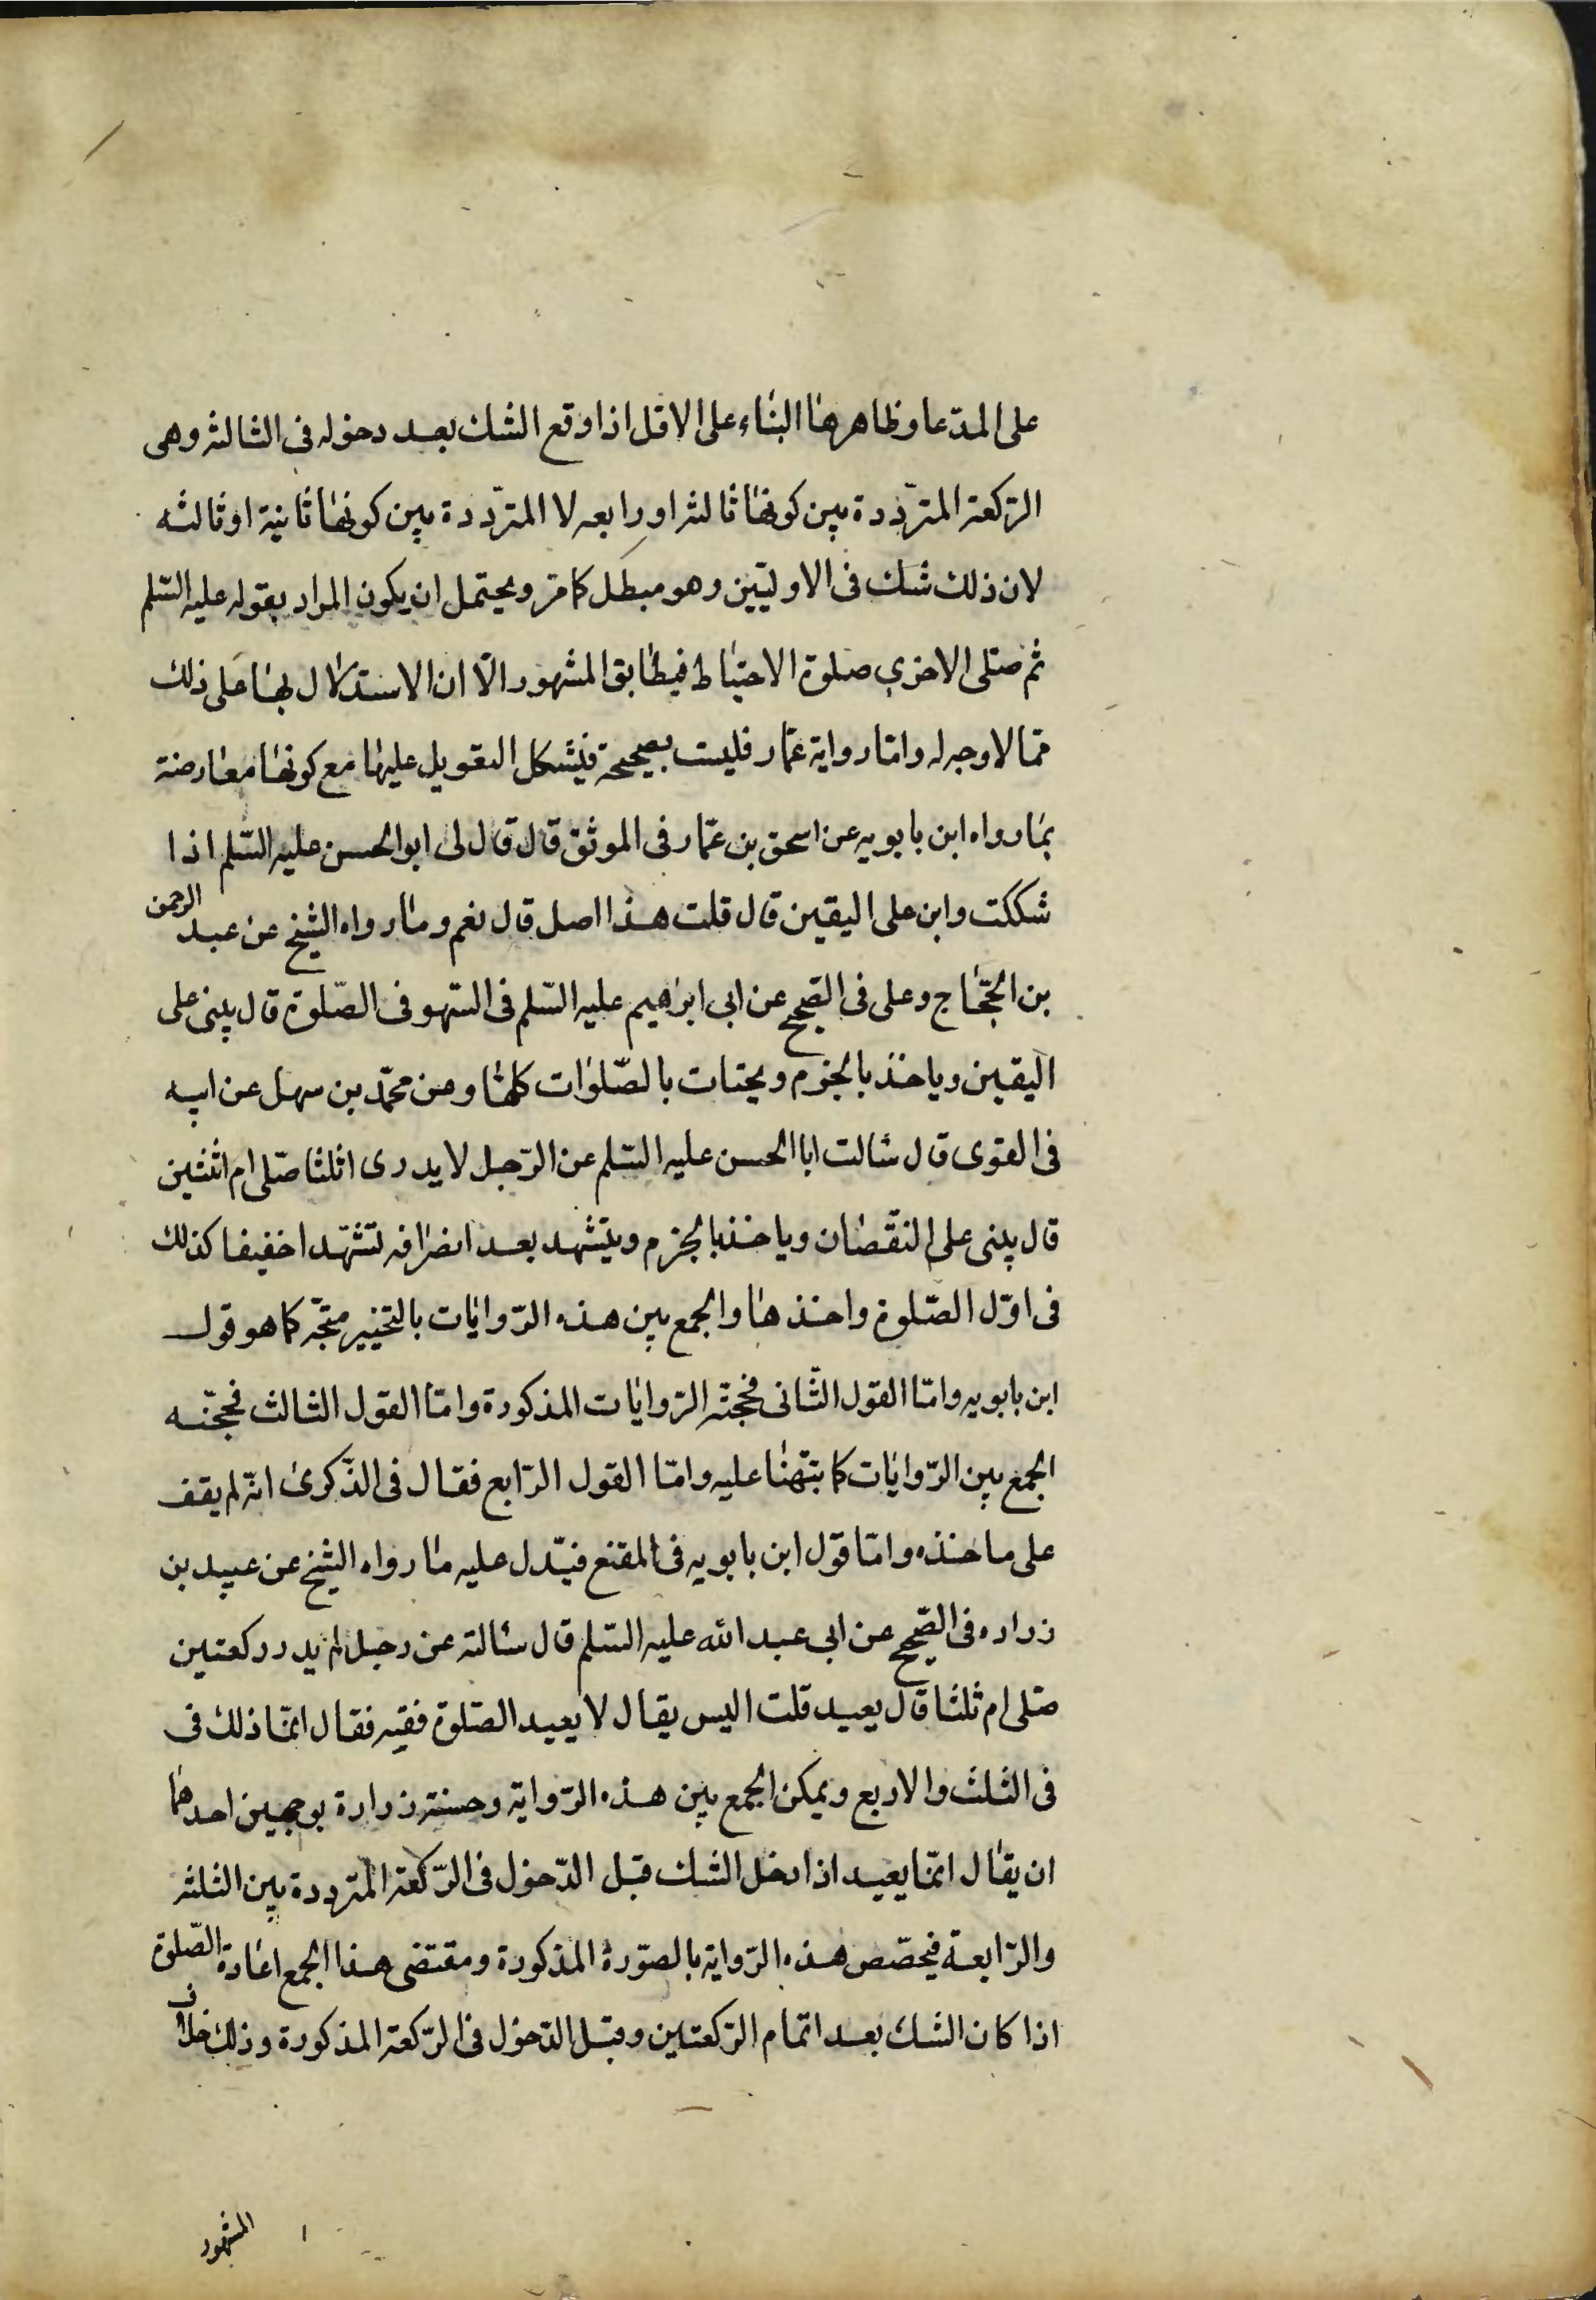 على المدّعا وظاهرها البناء على الاقل اذا وقع الشك بعد دخوله فى الثالثة وهى
الركعة المتردّدة بين كونها ثالثة او رابعه لا المتردّدة بين كونها ثانية او ثالثه
لان ذلك شك فى الاوليّين وهو مبطل كما مرّ ويحتمل ان يكون المراد بقوله عليه السّلم
ثم صلى الاخرى صلوة الاحتياط فيطابق المشهور الّا ان الاستدلال بها على ذلك
ممّا لا وجه له وامّا رواية عمّار فليست بصحيحة فيشكل التعويل عليها مع كونها معارضة
بما رواه ابن بابويه عن اسحق بن عمّار فى الموثق قال قال لى ابو الحسن عليه السّلم اذا
شككت وابن على اليقين قال قلت هذا اصل قال نعم وما رواه الشيخ عن عبد الرحمن
بن الحجّاج وعلى فى الصّحيح عن ابى ابراهيم عليه السّلم فى السّهو فى الصّلوة قال يبنى على
اليقين وياخذ بالجزم ويحتاط بالصّلوات كلها وعن محمّد بن سهل عن ابيه
فى القوى قال سالت ابا الحسن عليه السّلم عن الرّجل لا يدرى اثلثا صلى ام اثنتين
قال يبنى على النقصان وياخذ بالجزم ويتشهد بعد انصرافه تشهّدا خفيفا كذلك
فى اوّل الصّلوة واخذها والجمع بين هذه الرّوايات بالتخيير متّجه كما هو قول
ابن بابويه وامّا القول الثّانى فحجّته الرّوايات المذكورة وامّا القول الثالث فحجّته
الجمع بين الرّوايات كما نبّهنا عليه وامّا القول الرّابع فقال فى الذّكرى انّه لم يقف
على ماخذه وامّا قول ابن بابويه فى المقنع فيدّل عليه ما رواه الشيخ عن عبيد بن
زراره فى الصّحيح عن ابى عبد الله عليه السّلم قال سالته عن رجل لم يدر ركعتين
صّلى ام ثلثا قال يعيد قلت اليس يقال لا يعيد الصّلوة فقيه فقال انّما ذلك فى
فى الثلث والاربع ويمكن الجمع بين هذه الرّواية وحسنة زرارة بوجهين احدهما
ان يقال انّما يعيد اذا دخل الشك قبل الدّخول فى الرّكعة المتردّدة بين الثلثة
والرّابعة فيخصّص هذه الرّواية بالصّورة المذكورة ومقتضى هذا الجمع اعادة الصّلوة
اذا كان الشك بعد اتمام الرّكعتين وقبل الدّخول فى الرّكعة المذكورة وذلك خلاف
المشهور